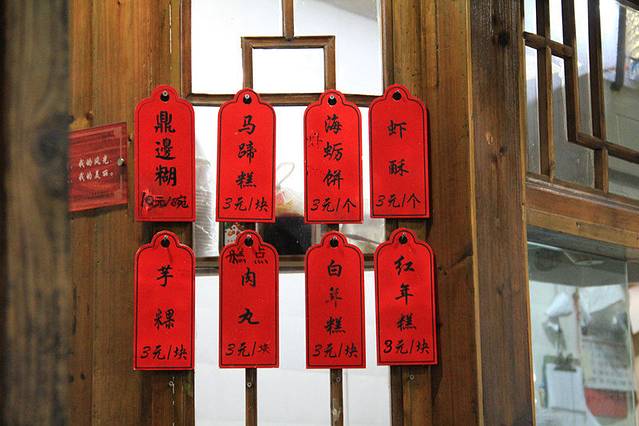 鼎邊糊
10元/碗
马蹄糕
3元/块
海蛎饼
3元/个
虾酥
3元/个
我的风光,
我的美丽。
芋粿
3元/块
糕点
肉丸
3元/块
白年糕
3元/块
红年糕
3元/块